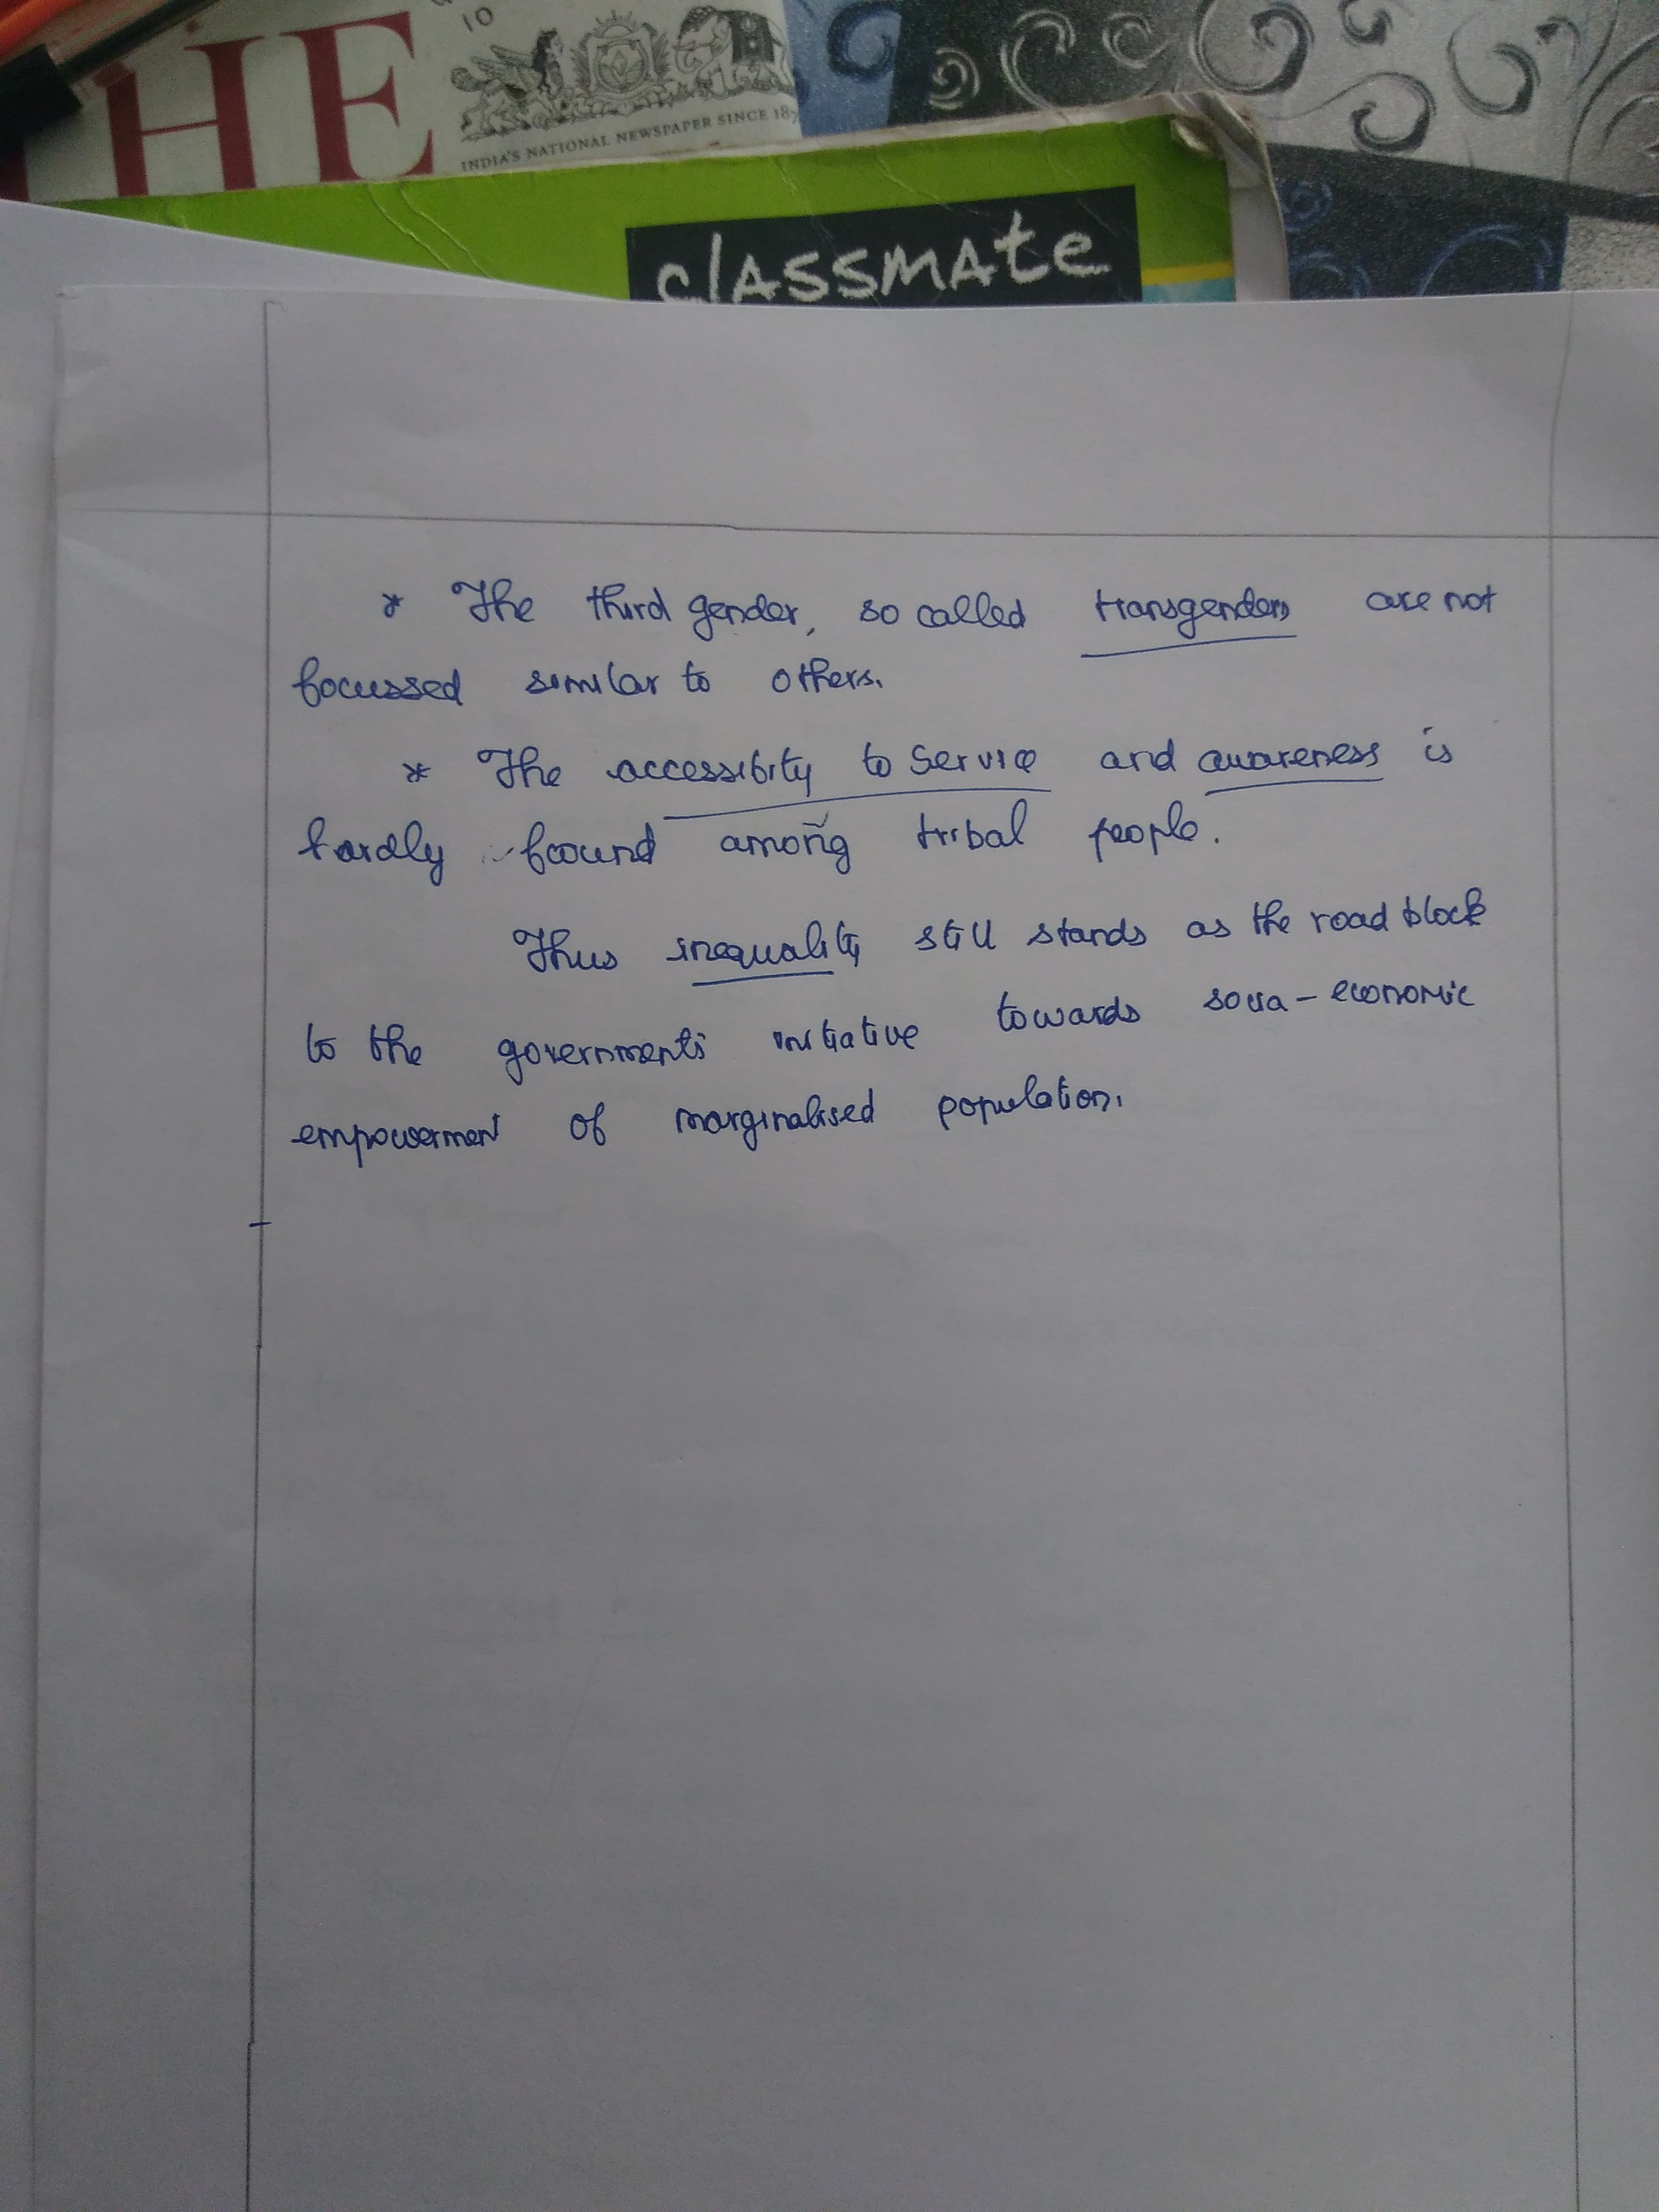 10
THE
INDIA'S NATIONAL NEWSPAPER SINCE 187
classmate
* The third gender, so called transgenders are not
focussed similar to others.
* The accessibity to Service and awareness is
hardly found among tribal people.
Thus inequality still stands as the road block
to the governments initiative towards socia-economic
empowerment of marginalised population.